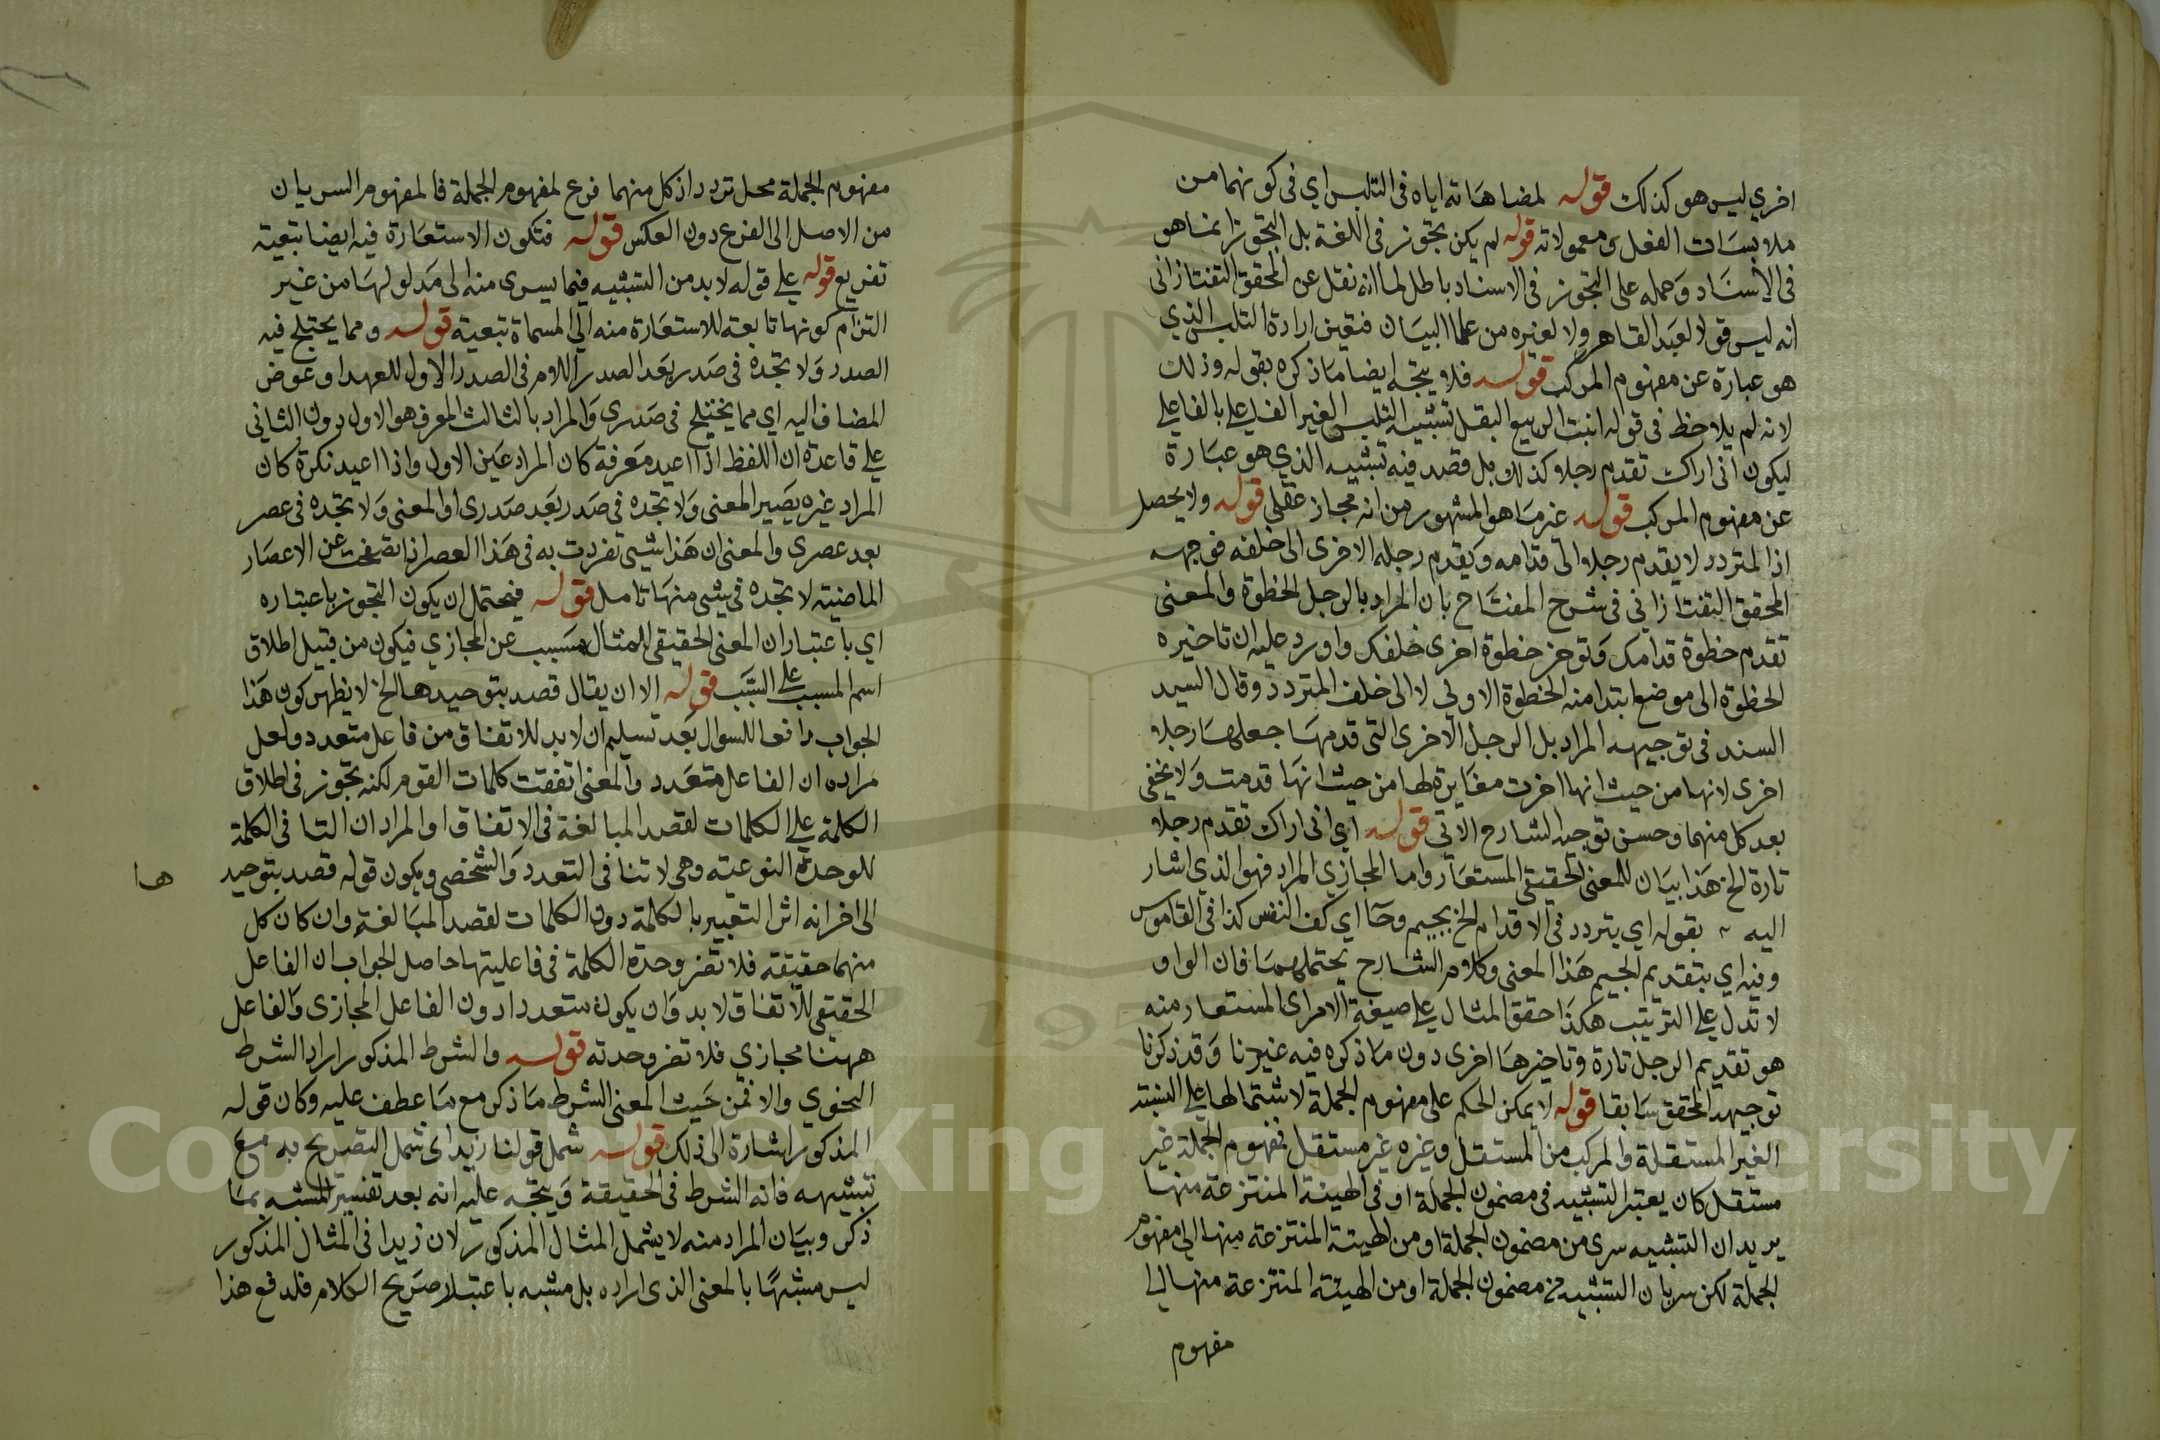 اخري ليس هو كذلك قوله لمضاهاته اياه في التلبس اي في كونهما من
ملابسات الفعل ومعمولاته قوله لم يكن تجوز في اللغة بل التجوز انما هو
في الاسناد وحمله على التجوز في الاسناد باطل لما انه نقل عن المحقق التفتازاني
انه ليس قولا لعبد القاهر ولا لغيره من علما البيان فتعين ارادة التلبس الذي
هو عبارة عن مفهوم المركب قوله فلا يتجه ايضا ما ذكره بقوله وذلك
لانه لم يلاحظ في قوله انبت الربيع البقل تشبيه التلبس الغير الفاعلي بالفاعلي
ليكون اني اراك تقدم رجلا كذلك بل قصد فيه تشبيه الذي هو عبارة
عن مفهوم المركب قوله غير ما هو المشهور من انه مجاز عقلي قوله ولا يحصل
اذ المتردد لا يقدم رجلا الى قدامه ويقدم رجله الاخرى الى خلفه فوجهه
المحقق التفتازاني في شرح المفتاح بان المراد بالرجل الخطوة والمعنى
تقدم خطوة قدامك وتوخر خطوة اخرى خلفك واورد عليه ان تاخيره
الخطوة الى موضع ابتدا منه الخطوة الاولى لا الى خلف المتردد وقال السيد
السند في توجيهه المراد بل الرجل الاخرى التي قدمها جعلها رجلا
اخرى لانها من حيث انها اخرت مغايرة لها من حيث انها قدمت ولا يخفى
بعد كل منهما وحسن توجيه الشارح الاتي قوله اي اني اراك تقدم رجلا
تارة الخ هذا بيان للمعنى الحقيقي المستعار واما المجازي المراد فهو الذي اشار
اليه بقوله اي يتردد في الاقدام الخ بجيم وحا اي كف النفس كذا في القاموس
وفيه اي بتقديم الجيم هذا المعنى وكلام الشارح يحتملهما فان الواو
لا تدل على الترتيب هكذا حقق المثال على صيغة الامر اي المستعار منه
هو تقديم الرجل تارة وتاخيرها اخرى دون ما ذكره فيه غيرنا وقد ذكرنا
توجيه المحقق سابقا قوله لا يمكن الحكم على مفهوم الجملة لاشتمالها على النسبة
الغير المستقلة والمركب من المستقل وغيره غير مستقل فمفهوم الجملة غير
مستقل كان يعتبر التشبيه في مضمون الجملة او في الهيئة المنتزعة منها
يريد ان التشبيه سرى من مضمون الجملة او من الهيئة المنتزعة منها الى مفهوم
الجملة لكن سريان التشبيه من مضمون الجملة او من الهيئة المنتزعة منها الى
مفهوم
مفهوم الجملة محل تردد اذ كل منهما فرع لمفهوم الجملة فالمفهوم السريان
من الاصل الى الفرع دون العكس قوله فتكون الاستعارة فيه ايضا تبعية
تفريع قوله على قوله لا بد من التشبيه فيما يسرى منه الى مدلولها من غير
التزام كونها تابعة للاستعارة منه الى المسماة تبعية قوله ومما يختلج فيه
الصدر ولا تجده في صدر بعد الصدر اللام في الصدر الاول للعهد او عوض
المضاف اليه اي مما يختلج في صدري والمراد بالثالث المعرف هو الاول دون الثاني
على قاعدة ان اللفظ اذا اعيد معرفة كان المراد عين الاول واذا اعيد نكرة كان
المراد غيره يصير المعنى ولا تجده في صدر بعد صدري او المعنى ولا تجده في عصر
بعد عصري والمعنى ان هذا شيى تفردت به في هذا العصر اذا تصفحت عن الاعصار
الماضية لا تجده في شيى منها تامل قوله فيحتمل ان يكون التجوز باعتباره
اي باعتبار ان المعنى الحقيقي للمثال مسبب عن المجازي فيكون من قبيل اطلاق
اسم المسبب على السبب قوله الا ان يقال قصد بتوحيدها الخ لا يظهر كون هذا
الجواب دافعا للسوال بعد تسليم ان لا بد للاتفاق من فاعل متعدد ولعل
مراده ان الفاعل متعدد والمعنى اتفقت كلمات القوم لكنه تجوز في اطلاق
الكلمة على الكلمات لقصد المبالغة في الاتفاق او المراد ان التا في الكلمة
للوحدة النوعية وهي لا تنافي التعدد الشخصي ويكون قوله قصد بتوحيد
ها
الى اخرانه اثر التعبير بالكلمة دون الكلمات لقصد المبالغة وان كان كل
منهما حقيقة فلا تضر وحدة الكلمة في فاعليتها حاصل الجواب ان الفاعل
الحقيقي للاتفاق لا بد وان يكون متعددا دون الفاعل المجازي والفاعل
ههنا مجازي فلا تضر وحدته قوله والشرط المذكور اراد الشرط
النحوي والا فمن حيث المعنى الشرط ما ذكر مع ما عطف عليه وكان قوله
المذكور اشارة الى ذلك قوله شمل قولنا زيد اي شمل التصريح به مع
تشبيهه فانه الشرط في الحقيقة ويتجه عليه انه بعد تفسير المشبه بما
ذكر وبيان المراد منه لا يشمل المثال المذكور لان زيدا في المثال المذكور
ليس مشبها بالمعنى الذي اراده بل مشبه باعتبار صريح الكلام فلدفع هذا